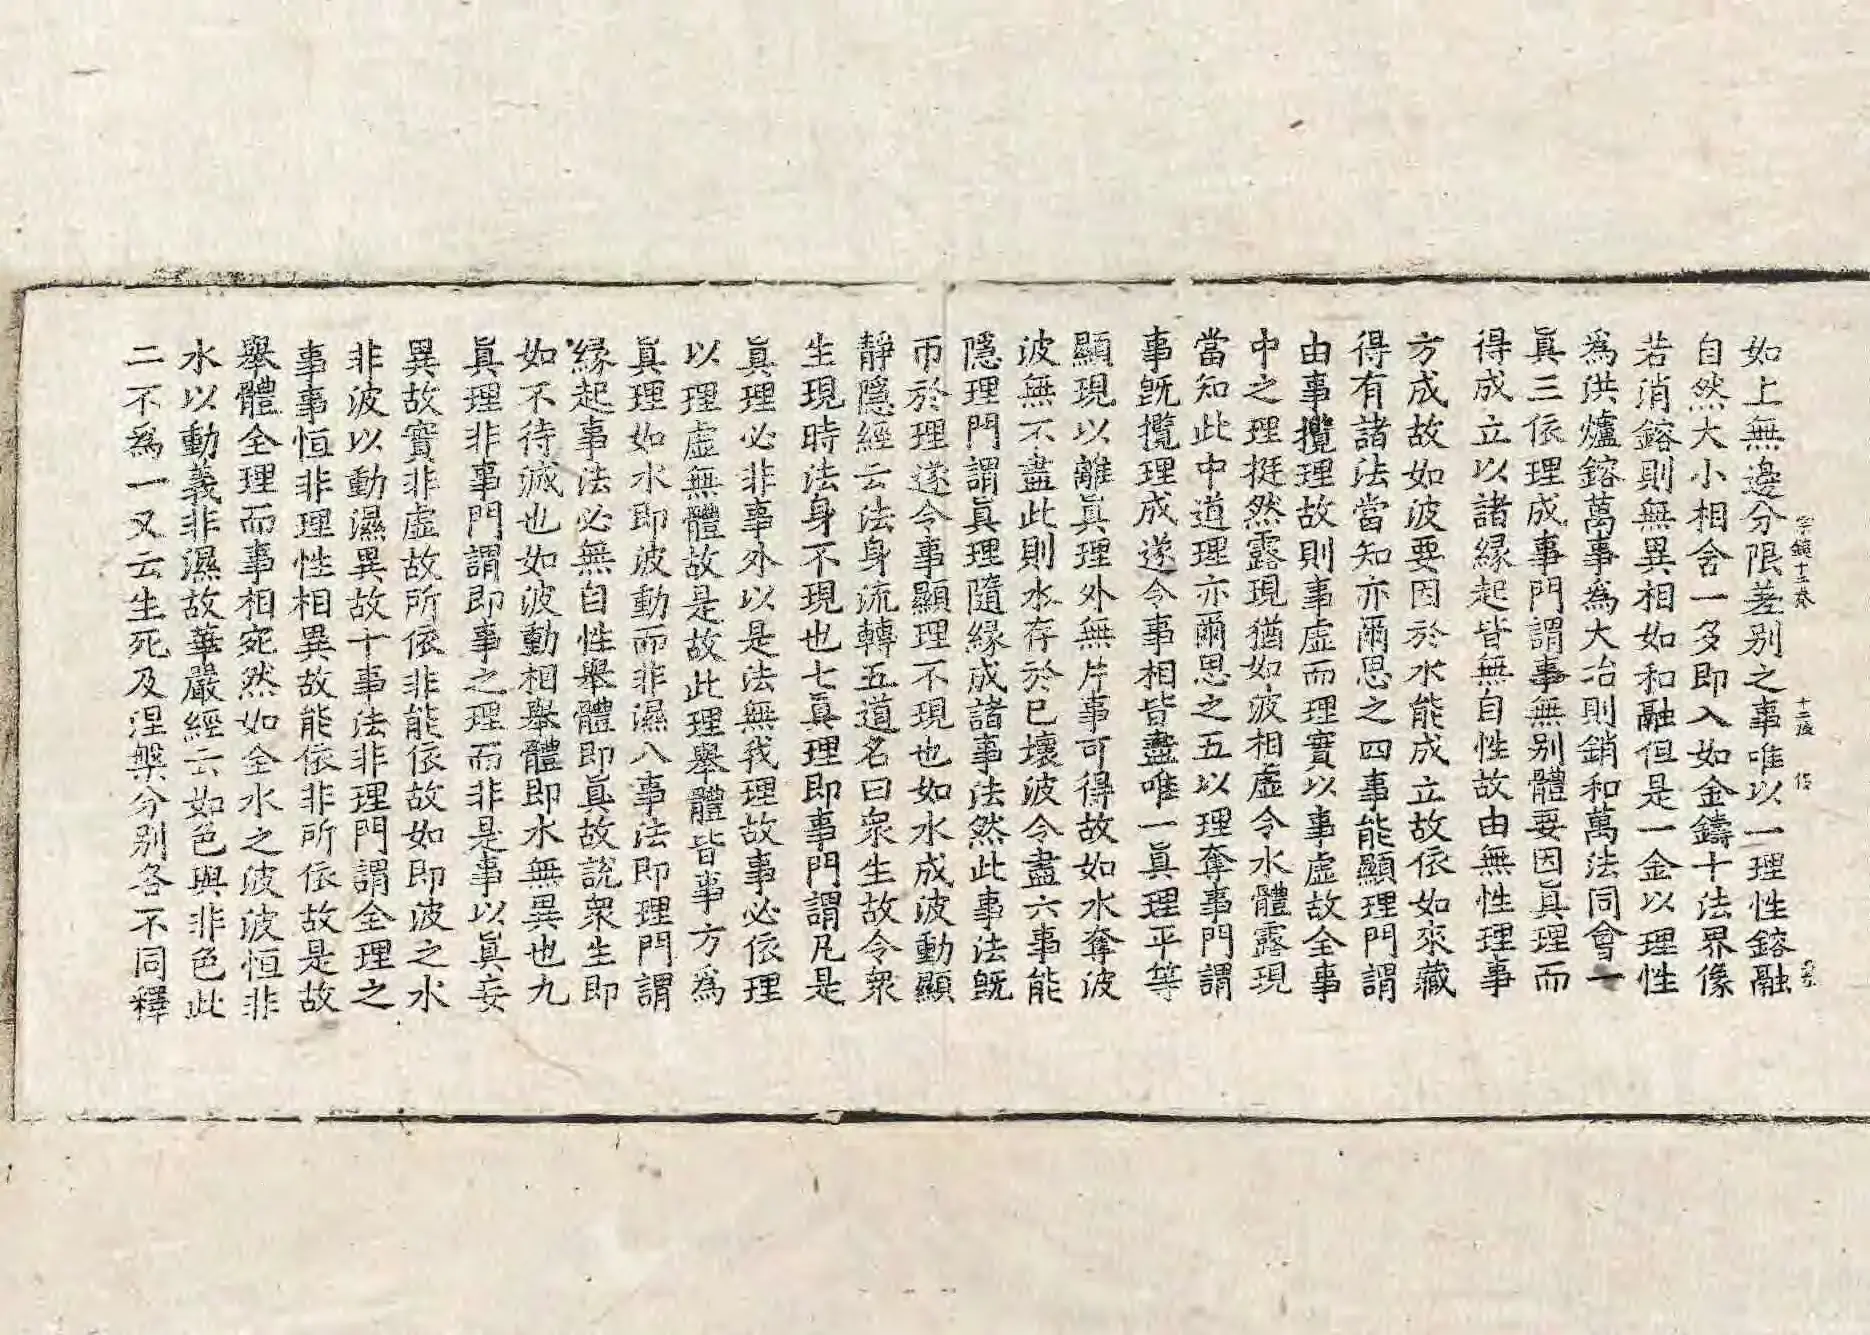 如上無邊分限差别之事唯以一理性鎔融
自然大小相含一多即入如金鑄十法界像
若消鎔則無異相如和融但是一金以理性
為洪爐鎔萬事為大冶則銷和萬法同會一
真三依理成事門謂事無别體要因真理而
得成立以諸緣起皆無自性故由無性理事
方成故如波要因於水能成立故依如來藏
得有諸法當知亦爾思之四事能顯理門謂
由事攬理故則事虛而理實以事虛故全事
中之理挺然露現猶如波相虛令水體露現
當知此中道理亦爾思之五以理奪事門謂
事既攬理成遂令事相皆盡唯一真理平等
顯現以離真理外無片事可得故如水奪波
波無不盡此則水存於已壞波令盡六事能
隱理門謂真理隨緣成諸事法然此事法既
帀於理遂令事顯理不現也如水成波動顯
靜隱經云法身流轉五道名曰衆生故令衆
生現時法身不現也七真理即事門謂凡是
真理必非事外以是法無我理故事必依理
以理虛無體故是故此理舉體皆事方為
真理如水即波動而非濕八事法即理門謂
緣起事法必無自性舉體即真故說衆生即
如不待滅也如波動相舉體即水無異也九
真理非事門謂即事之理而非是事以真妄
異故實非虛故所依非能依故如即波之水
非波以動濕異故十事法非理門謂全理之
事事恒非理性相異故能依非所依故是故
舉體全理而事相宛然如全水之波波恒非
水以動義非濕故華嚴經云如色與非色此
二不為一又云生死及涅槃分别各不同釋